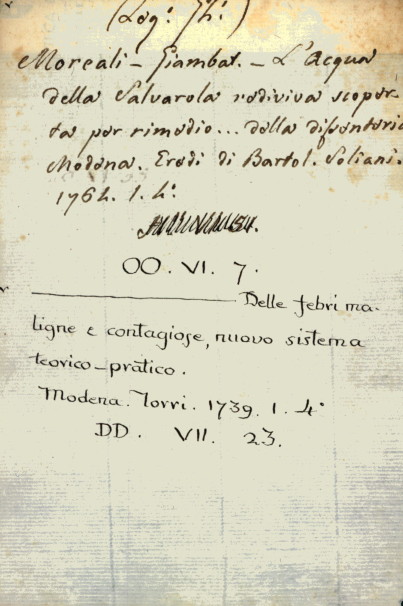 (Log: Th:)
Moreali - Giambat. - L'Acqua
della Salvarola rediviva scoper-
ta per rimedio... della dissenteria
Modena. Eredi di Bartol. Soliani.
1764. 1. 4:
OO. VI. 7.
Delle febri ma-
ligne e contagiose, nuovo sistema
teorico-pratico.
Modena. Torri. 1739. 1. 4°
DD. VII. 23.